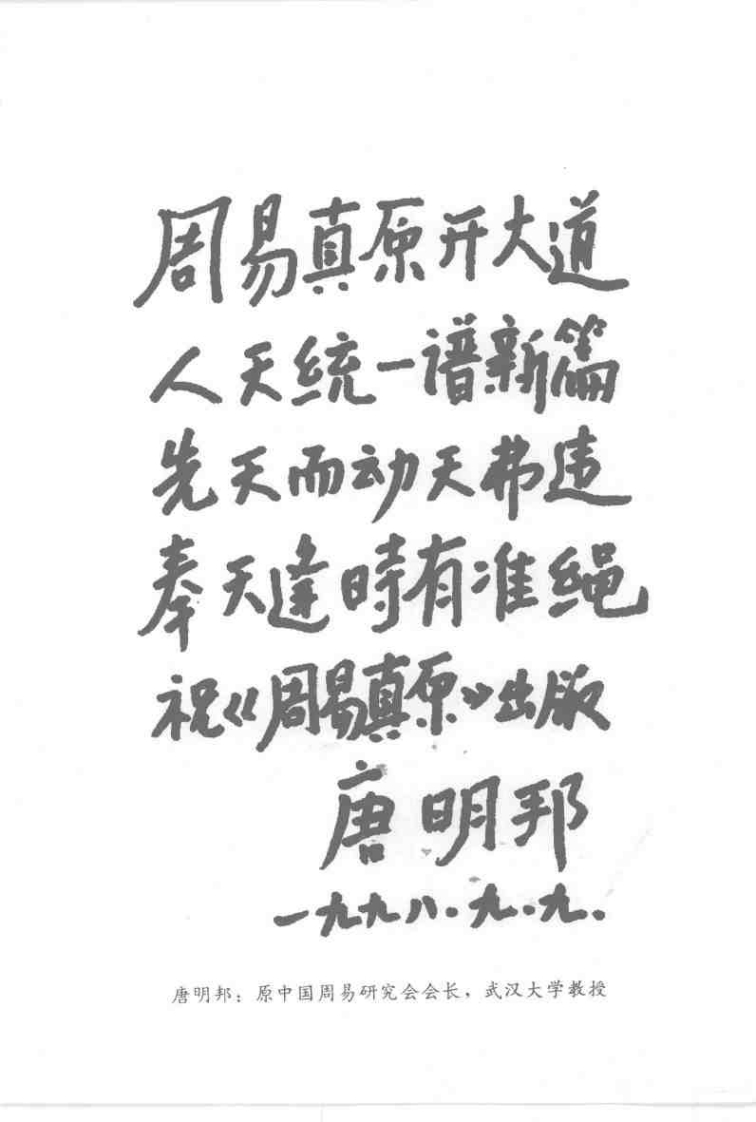 周易真原开大道
人天统一谱新篇
先天而动天弗违
奉天逢時有准绳
祝《周易真原》出版
唐明邦
一九九八.九.九.
唐明邦：原中国周易研究会会长，武汉大学教授